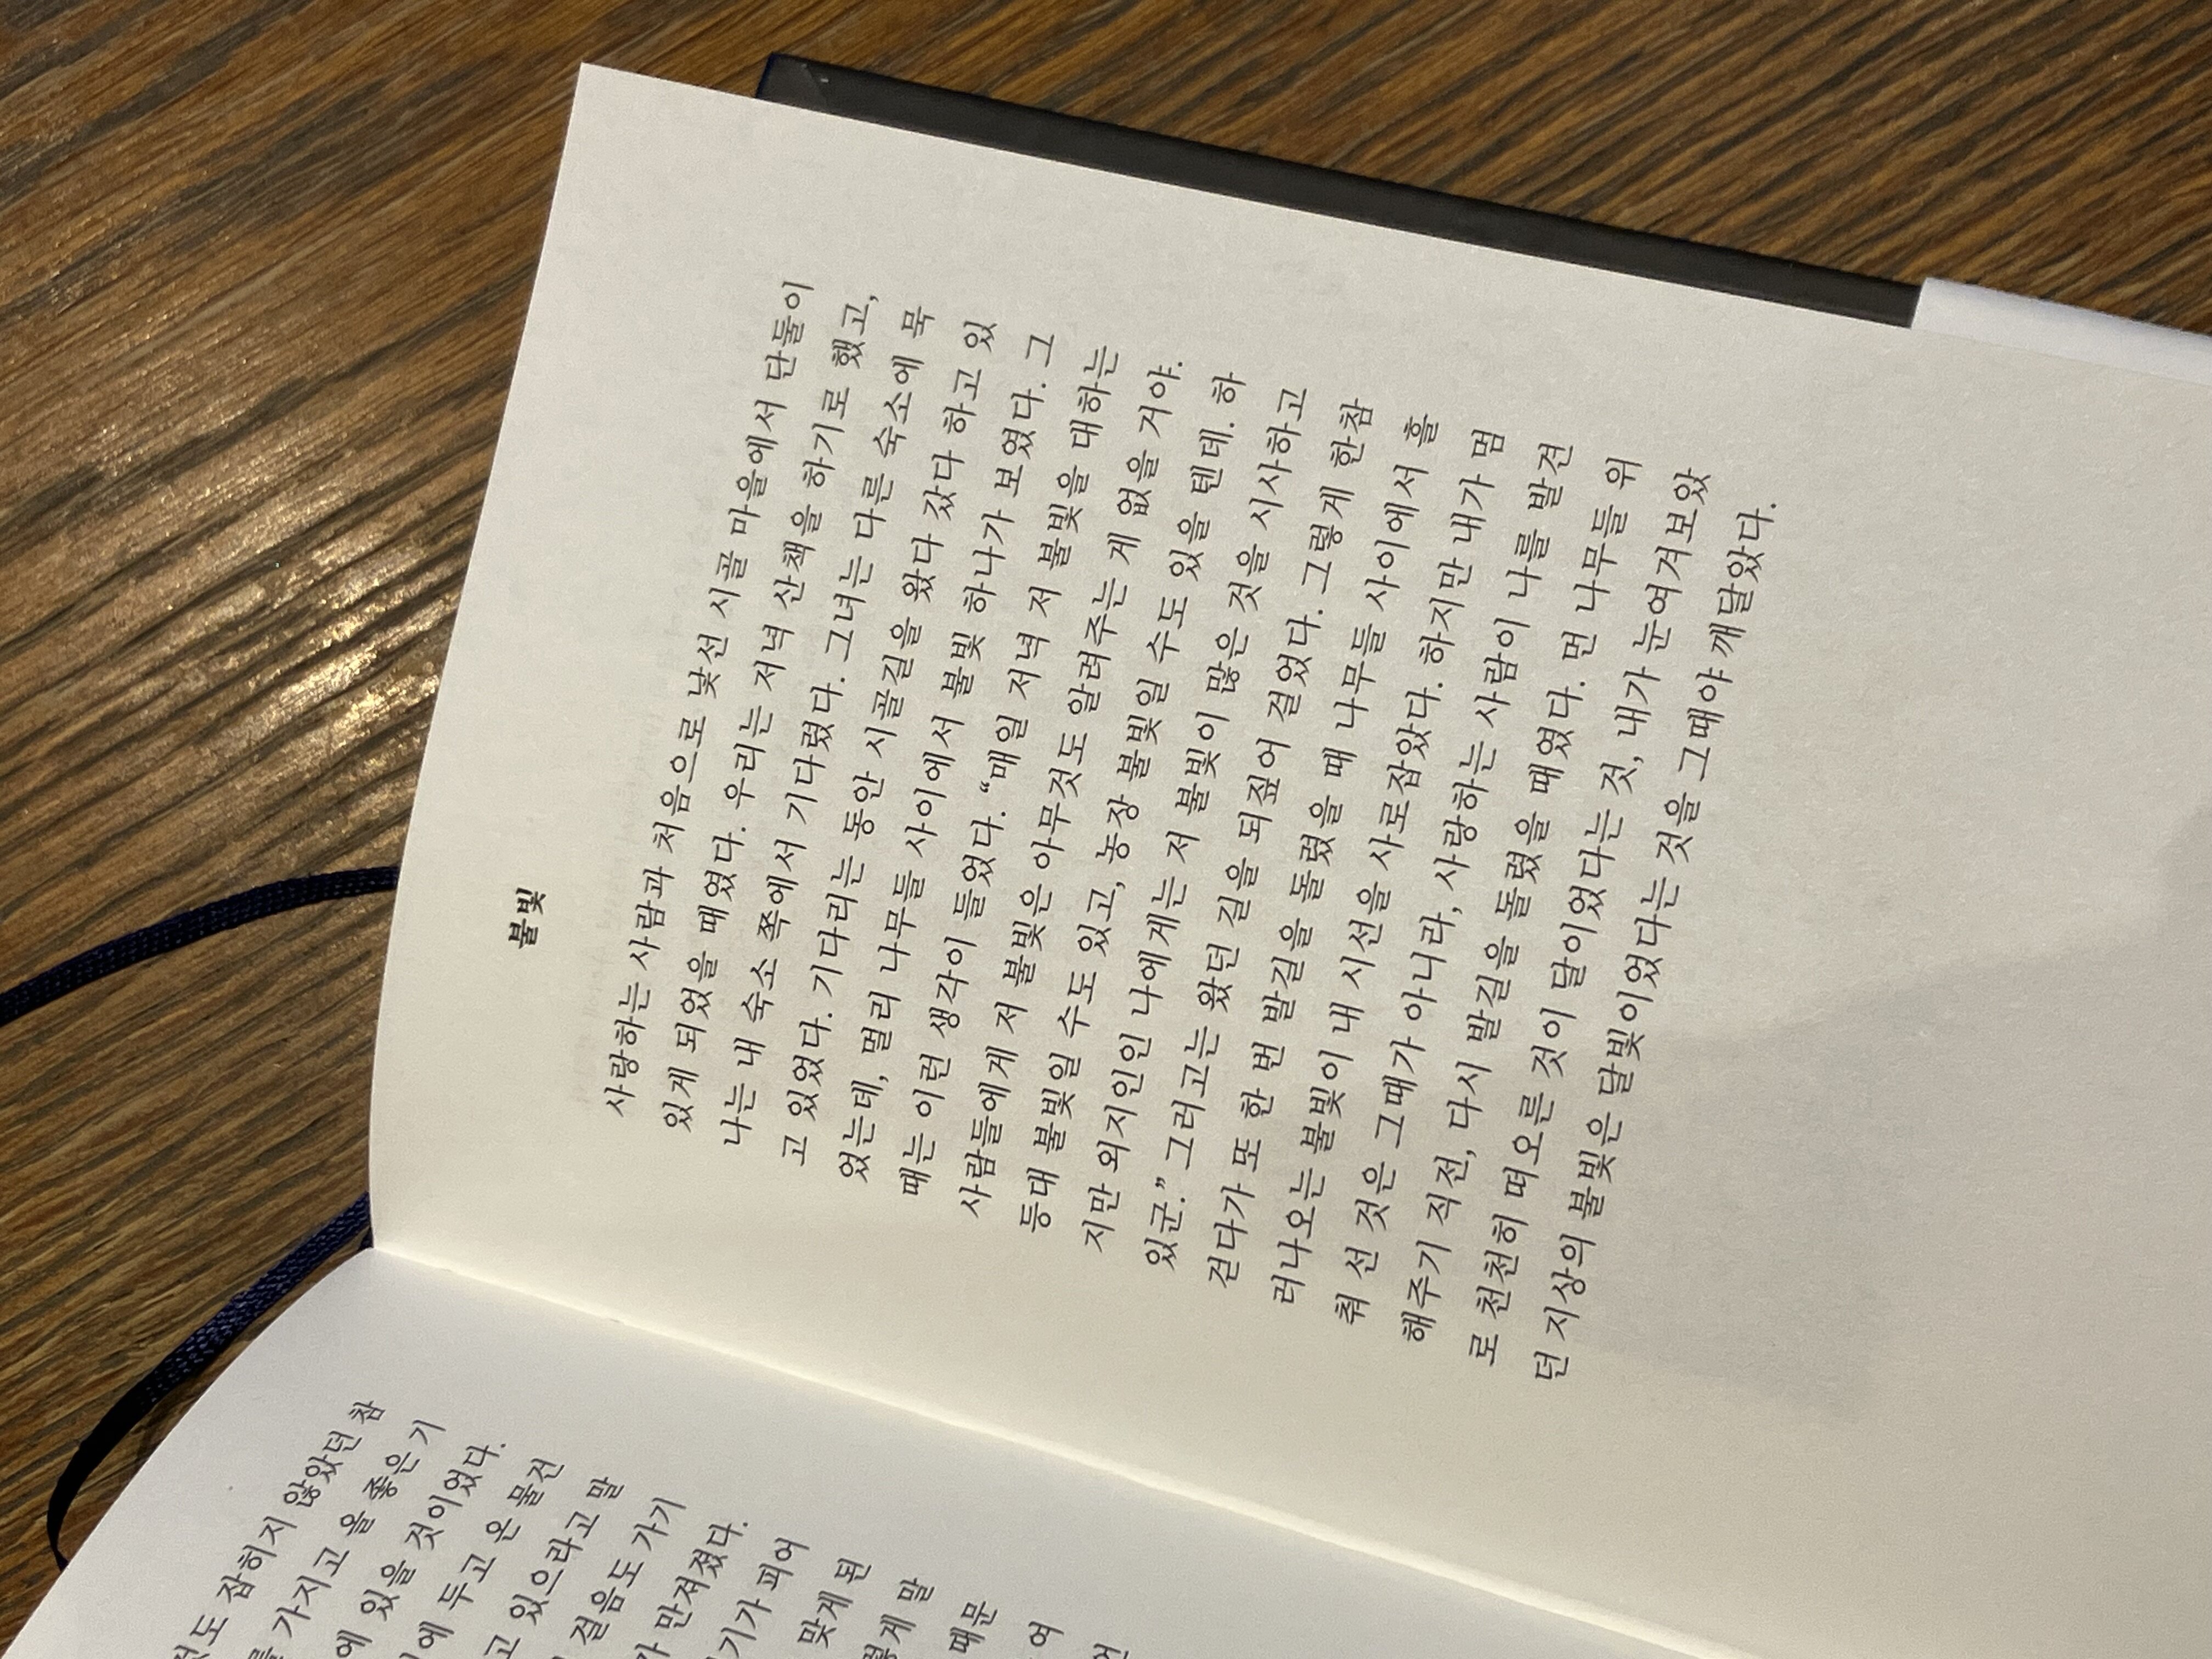 것도 잡히지 않았던 참
를 가지고 올 좋은 기
에 있을 것이었다.
에 두고 온 물건
고 있으라고 말
걸음도 가기
가 만져졌다.
기가 피어
맞게 된
렇게 말
때문
여
불빛
사랑하는 사람과 처음으로 낯선 시골 마을에서 단둘이
있게 되었을 때였다. 우리는 저녁 산책을 하기로 했고,
나는 내 숙소 쪽에서 기다렸다. 그녀는 다른 숙소에 묵
고 있었다. 기다리는 동안 시골길을 왔다 갔다 하고 있
었는데, 멀리 나무들 사이에서 불빛 하나가 보였다. 그
때는 이런 생각이 들었다. “매일 저녁 저 불빛을 대하는
사람들에게 저 불빛은 아무것도 알려주는 게 없을 거야.
등대 불빛일 수도 있고, 농장 불빛일 수도 있을 텐데. 하
지만 외지인인 나에게는 저 불빛이 많은 것을 시사하고
있군.” 그러고는 왔던 길을 되짚어 걸었다. 그렇게 한참
걷다가 또 한 번 발길을 돌렸을 때 나무들 사이에서 흘
러나오는 불빛이 내 시선을 사로잡았다. 하지만 내가 멈
춰 선 것은 그때가 아니라, 사랑하는 사람이 나를 발견
해주기 직전, 다시 발길을 돌렸을 때였다. 먼 나무들 위
로 천천히 떠오른 것이 달이었다는 것, 내가 눈여겨보았
던 지상의 불빛은 달빛이었다는 것을 그때야 깨달았다.